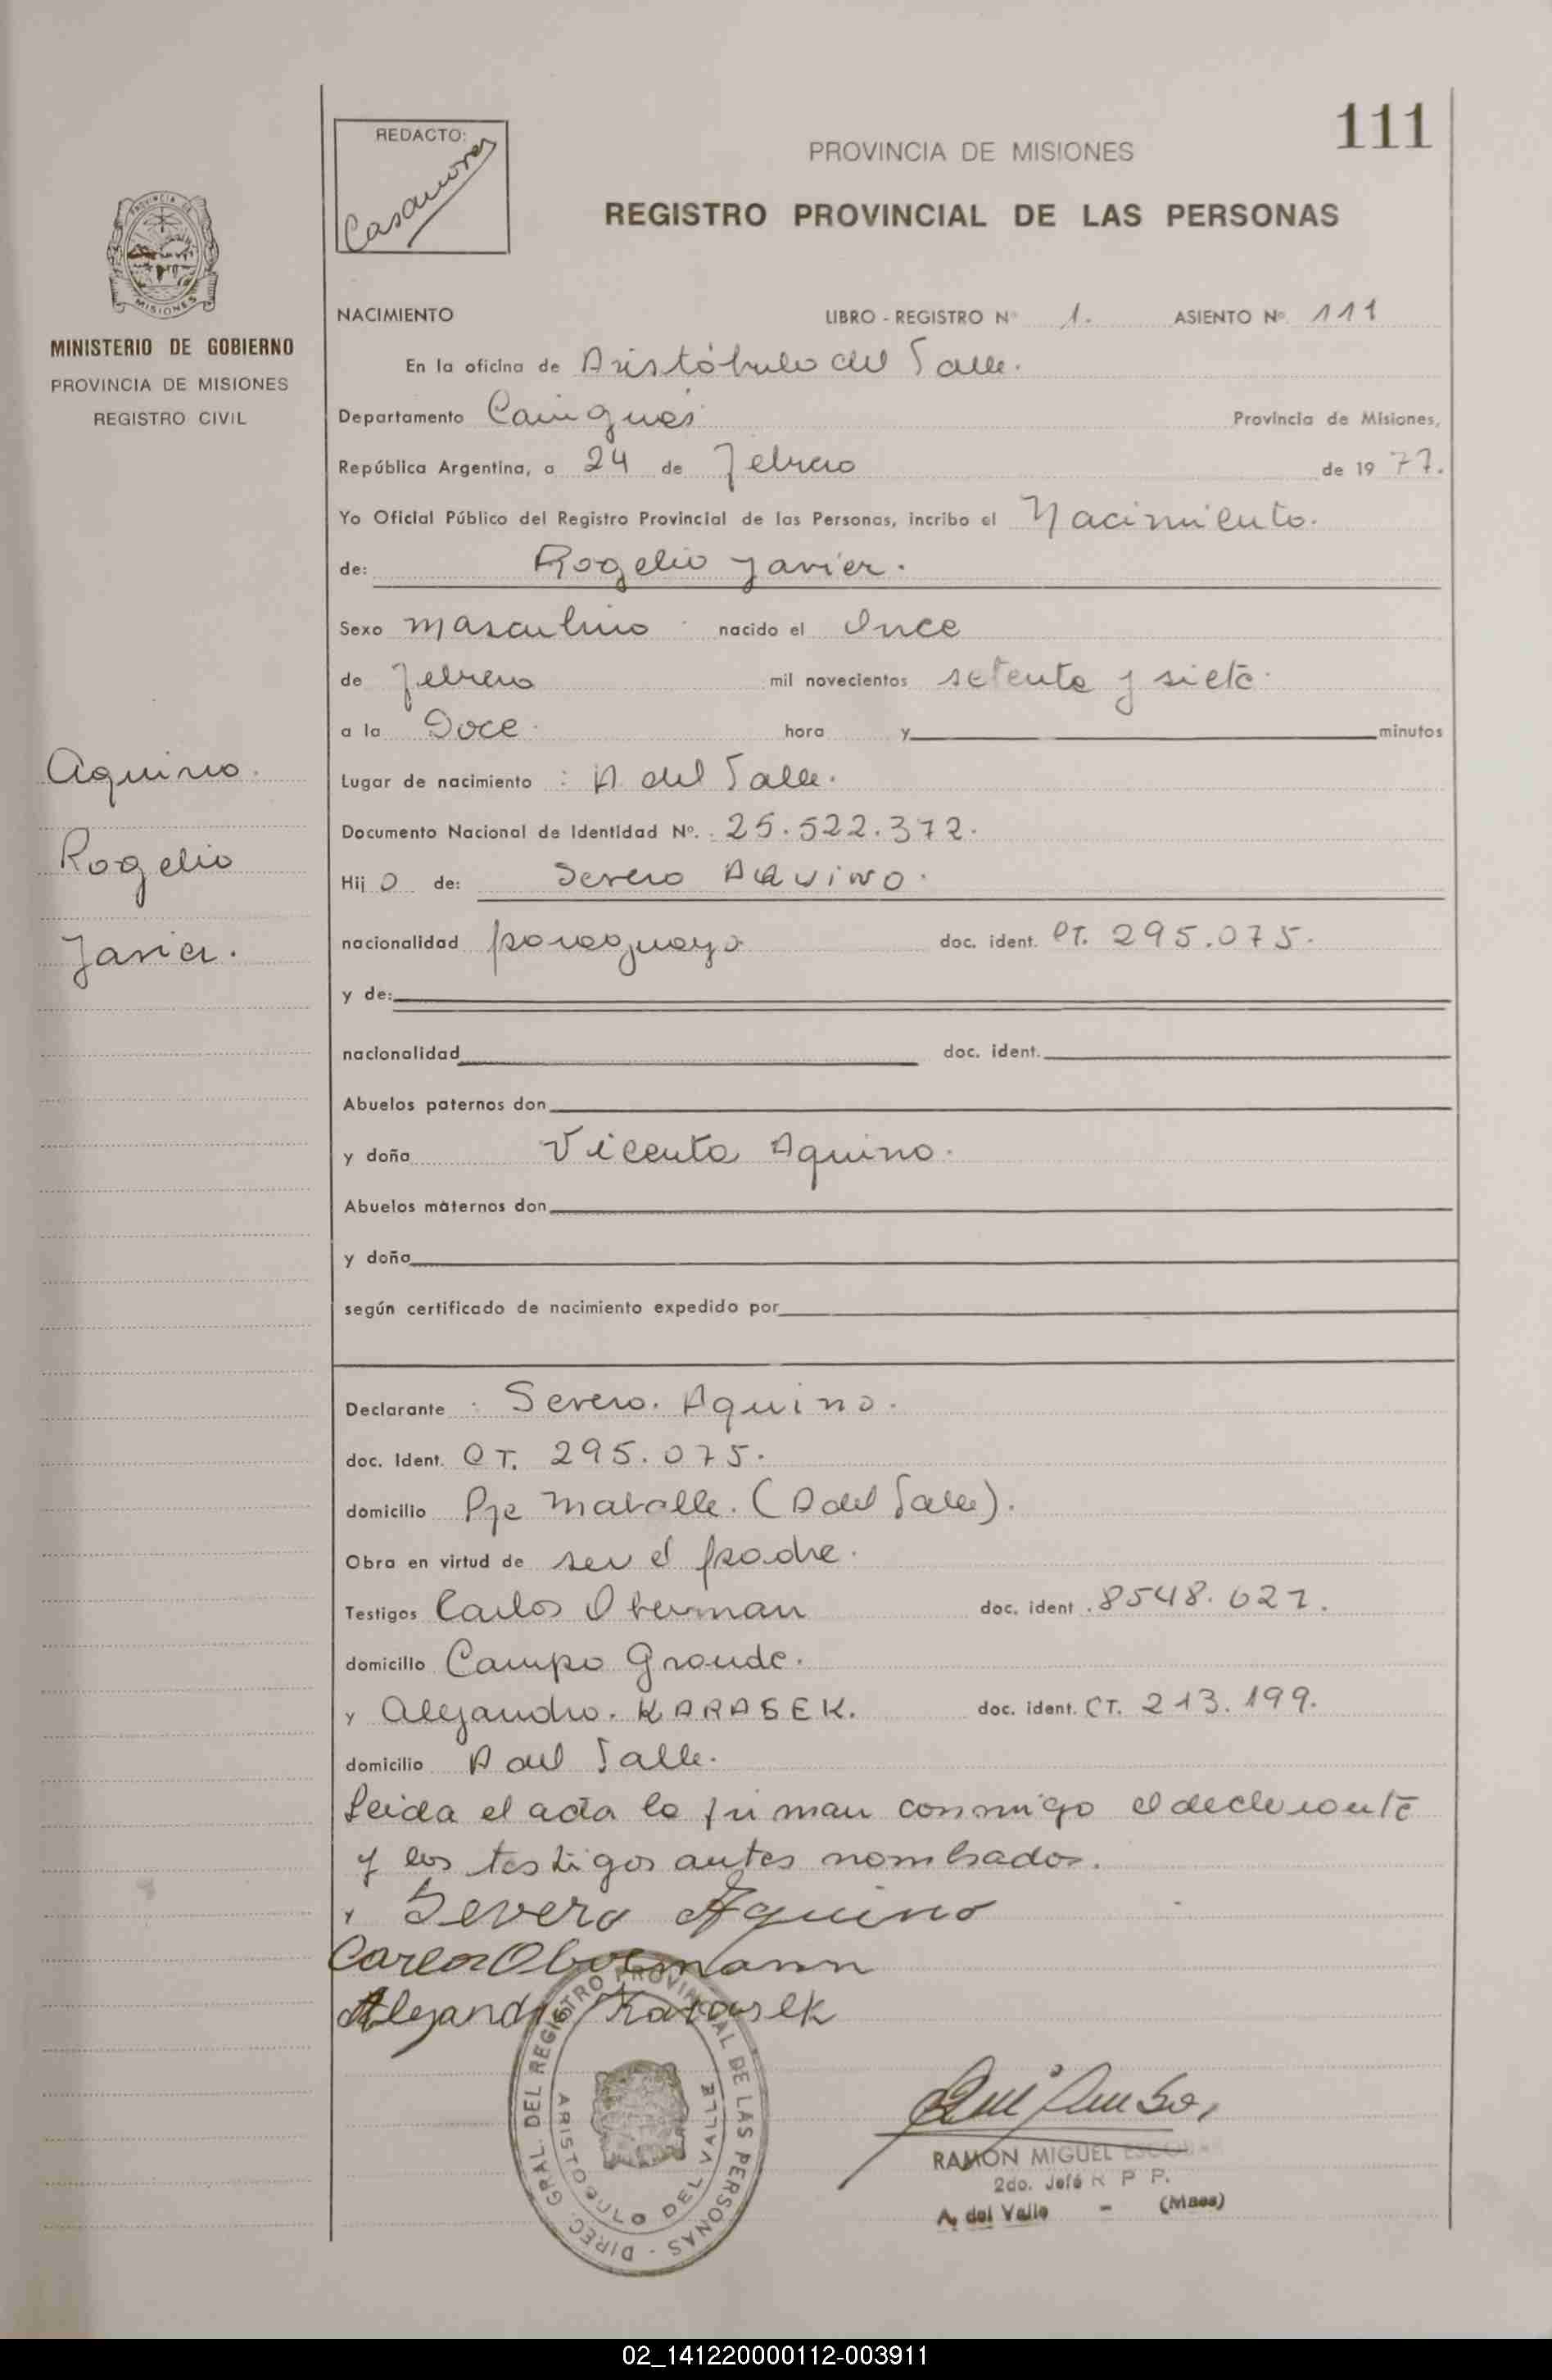 111
REDACTO:
Casamores
PROVINCIA DE MISIONES
REGISTRO PROVINCIAL DE LAS PERSONAS
PROVINCIA DE
MISIONES
MINISTERIO DE GOBIERNO
PROVINCIA DE MISIONES
REGISTRO CIVIL
NACIMIENTO LIBRO - REGISTRO Nº 1. ASIENTO Nº 111
En la oficina de Aristóbulo del Valle.
Departamento Cainguás Provincia de Misiones,
República Argentina, a 24 de Febrero de 19 77.
Yo Oficial Público del Registro Provincial de las Personas, incribo el Nacimiento.
de: Rogelio Javier.
Sexo masculino nacido el Once
de febrero mil novecientos setenta y siete
a la Doce hora y minutos
Aquino.
Rogelio
Javier.
Lugar de nacimiento : A del Valle.
Documento Nacional de Identidad Nº. 25.522.372.
Hij o de: Severo AQUINO.
nacionalidad paraguaya doc. ident. CT. 295.075.
y de:
nacionalidad doc. ident.
Abuelos paternos don
y doña Vicenta Aquino.
Abuelos maternos don
y doña
según certificado de nacimiento expedido por
Declarante : Severo. Aquino.
doc. Ident. CT. 295.075.
domicilio Pje (A del Valle).
Obra en virtud de ser el padre.
Testigos Carlos Oberman doc. ident. 8548.627.
domicilio Campo Grande.
y Alejandro. KARASEK. doc. ident. CT. 213.199.
domicilio A del Valle.
Leida el acta la firman conmigo el declarante
y los testigos antes nombrados.
Severo Aquino
Carlos Obermann
Alejandro Karasek
DIREC. GRAL. DEL REGISTRO PROVINCIAL DE LAS PERSONAS -
ARISTOBULO DEL VALLE
RAMON MIGUEL ESCOBAR
2do. Jefe R P P.
A. del Valle - (Mnes)
02_141220000112-003911